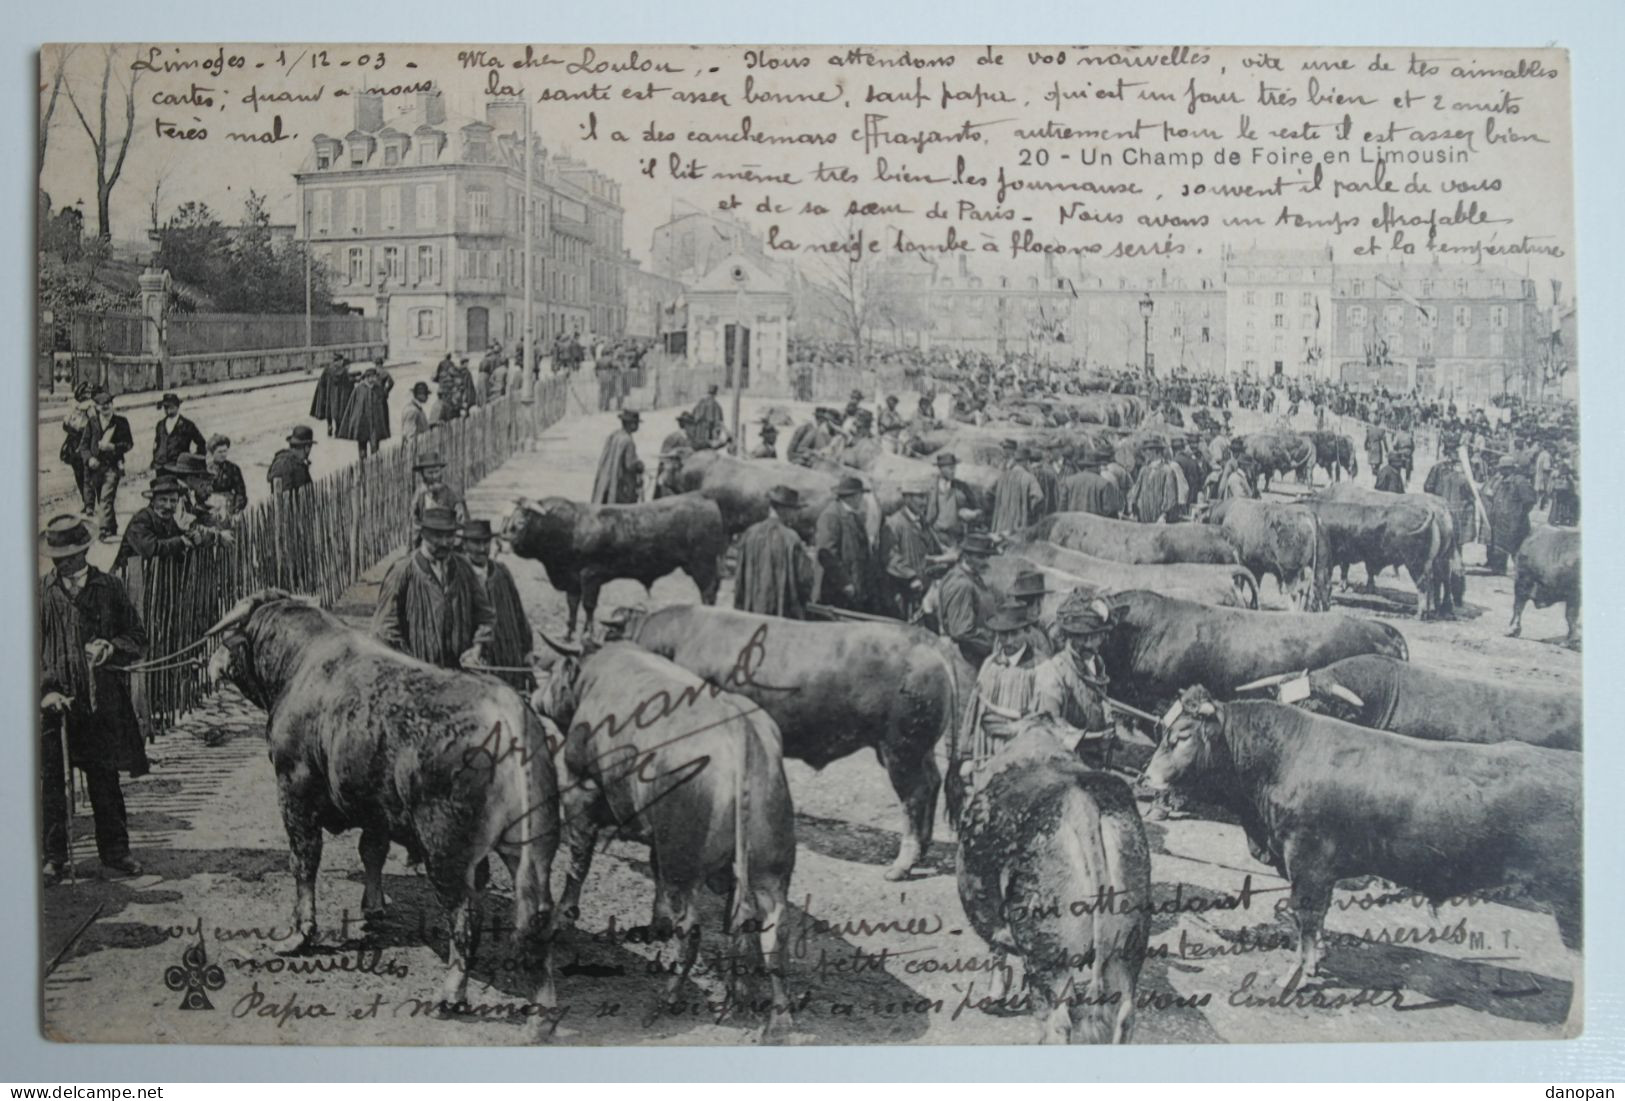 Limoges - 1/12 - 03 - Ma chèr Loulou, - Nous attendons de vos nouvelles, vite une de tes aimables
cartes; quand a nous, la santé est assez bonne, sauf papa, qui est un jour très bien et 2 nuits
terès mal. il a des cauchemars effrayants, autrement pour le reste il est assez bien
20 - Un Champ de Foire en Limousin
il lit même très bien les journause, souvent il parle de vous
et de sa sœur de Paris - Nous avons un temps effroyable
la neige tombe à flocons serrés. et la température
Armand
moyenne est de dans la journée - En attendant de vos
nouvelles reçois de ton petit cousin ses plus tendres caresses
M. T.
Papa et maman se joignent a moi pour tous vous embrasser
C C C C
danopan